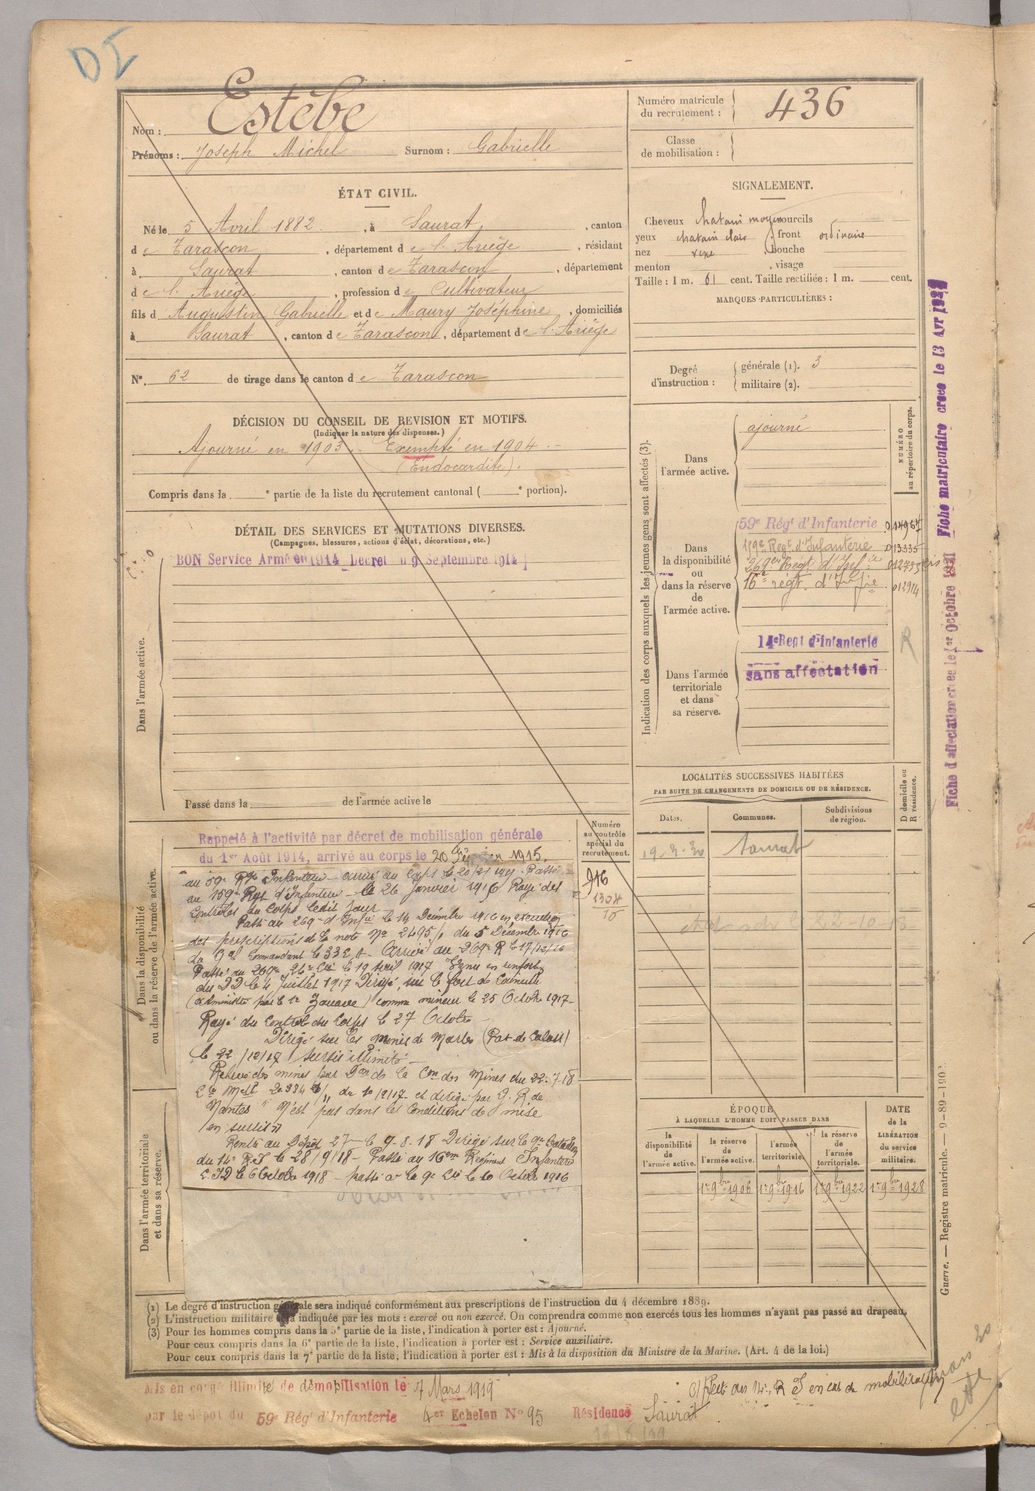 DI
Nom : Estèbe
Prénoms : Joseph Michel Surnom : Gabrielle
Numéro matricule du recrutement : 436
Classe de mobilisation :
ÉTAT CIVIL.
Né le 5 Avril 1882, à Saurat, canton
de Tarascon, département de l'Ariège, résidant
à Saurat, canton de Tarascon, département
de l'Ariège, profession de Cultivateur
fils d'Augustin Gabrielle et de Maury Joséphine, domiciliés
à Saurat, canton de Tarascon, département de l'Ariège
N° 62 de tirage dans le canton de Tarascon
SIGNALEMENT.
Cheveux chatain moyen sourcils
yeux chatain clair front ordinaire
nez bouche
menton , visage
Taille : 1 m. 61 cent. Taille rectifiée : 1 m. cent.
MARQUES PARTICULIÈRES :
Degré d'instruction : générale (1). 3
militaire (2).
DÉCISION DU CONSEIL DE REVISION ET MOTIFS.
(Indiquer la nature des dispenses.)
Ajourné en 1903. Exempté en 1904
(Endocardite).
Compris dans la e partie de la liste du recrutement cantonal ( e portion).
DÉTAIL DES SERVICES ET MUTATIONS DIVERSES.
(Campagnes, blessures, actions d'éclat, décorations, etc.)
BON Service Armé en 1914 Decret du 9 Septembre 1914
Dans l'armée active.
Passé dans la de l'armée active le
Indication des corps auxquels les jeunes gens sont affectés (3).
NUMÉRO au répertoire du corps.
Dans l'armée active. ajourné
Dans la disponibilité ou dans la réserve de l'armée active.
59e Régt d'Infanterie
159e Regt d'Infanterie 013335
269e Regt d'Infie
16e régt. d'Infie 012914
Dans l'armée territoriale et dans sa réserve.
14e Regt d'Infanterie
sans affectation
R
LOCALITÉS SUCCESSIVES HABITÉES
PAR SUITE DE CHANGEMENTS DE DOMICILE OU DE RÉSIDENCE.
Dates. Communes. Subdivisions de région. D domicile ou R résidence.
19-3-30 Saurat
Dans la disponibilité ou dans la réserve de l'armée active.
Numéro au contrôle spécial du recrutement.
916
1304
10
Rappelé à l'activité par décret de mobilisation générale
du 1er Août 1914, arrivé au corps le 20 Février 1915.
au 59e Rgt Infanterie arrivé au Corps le Passé
au 159e Rgt d'Infanterie le 26 janvier 1916 Rayé des
contrôles du Corps ledit jour
Passé au 269e d'Infie le 14 Décembre 1916 en exécution
des prescriptions de la note No 2495/ du 5 Décembre 1916
du Gal Commandant le 33e C.A. Arrivé au 269e R le 17/12/16
Passé du 269e 26e Cie le 19 Avril 1917 en renfort
du DD le 4 Juillet 1917 Dirigé sur le fort de
(administré par le 1er Zouaves) comme mineur le 25 Octobre 1917
Rayé du Contrôle du Corps le 27 Octobre
Dirigé sur les mines de Marles (Pas de Calais)
le 22/12/17 sursis illimité
Relevé des mines par Don de la Con des Mines du 22.7.18
et dirigé par D.R. de
Nantes "N'est pas dans les Conditions de mise
en sursis"
Rentré au Dépôt 27 le 9.8.18 Dirigé sur le 9e Bataillon
du 14e R I le 28/9/18 Passé au 16em Régiment Infanterie
le 6 Octobre 1918 passé à la 9e le 10 Octobre 1916
Dans l'armée territoriale et dans sa réserve.
ÉPOQUE
À LAQUELLE L'HOMME DOIT PASSER DANS
la disponibilité de l'armée active. la réserve de l'armée active. l'armée territoriale. la réserve de l'armée territoriale.
DATE de la LIBÉRATION du service militaire.
1er 9bre 1906 1er 9bre 1916 1er 9bre 1922 1er 9bre 1928
(1) Le degré d'instruction générale sera indiqué conformément aux prescriptions de l'instruction du 4 décembre 1889.
(2) L'instruction militaire sera indiquée par les mots : exercé ou non exercé. On comprendra comme non exercés tous les hommes n'ayant pas passé au drapeau.
(3) Pour les hommes compris dans la 5e partie de la liste, l'indication à porter est : Ajourné.
Pour ceux compris dans la 6e partie de la liste, l'indication à porter est : Service auxiliaire.
Pour ceux compris dans la 7e partie de la liste, l'indication à porter est : Mis à la disposition du Ministre de la Marine. (Art. 4 de la loi.)
Mis en congé illimité de démobilisation le 7 Mars 1919
par le dépôt du 59e Rég' d'Infanterie 4er Echelon No 95 Résidence Saurat
Affecté au 14e R I en cas de mobilisation
Guerre. — Registre matricule. — 9-89-1902.
Fiche d'affectation créée le 1er Octobre 1921 Fiche matriculaire créée le 13 Avr 192